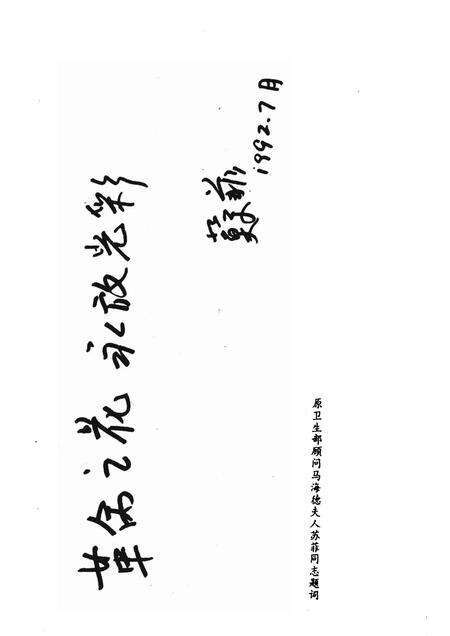 革命之花 永放光彩
蘇菲
1992.7月
原卫生部顾问马海德夫人苏菲同志题词